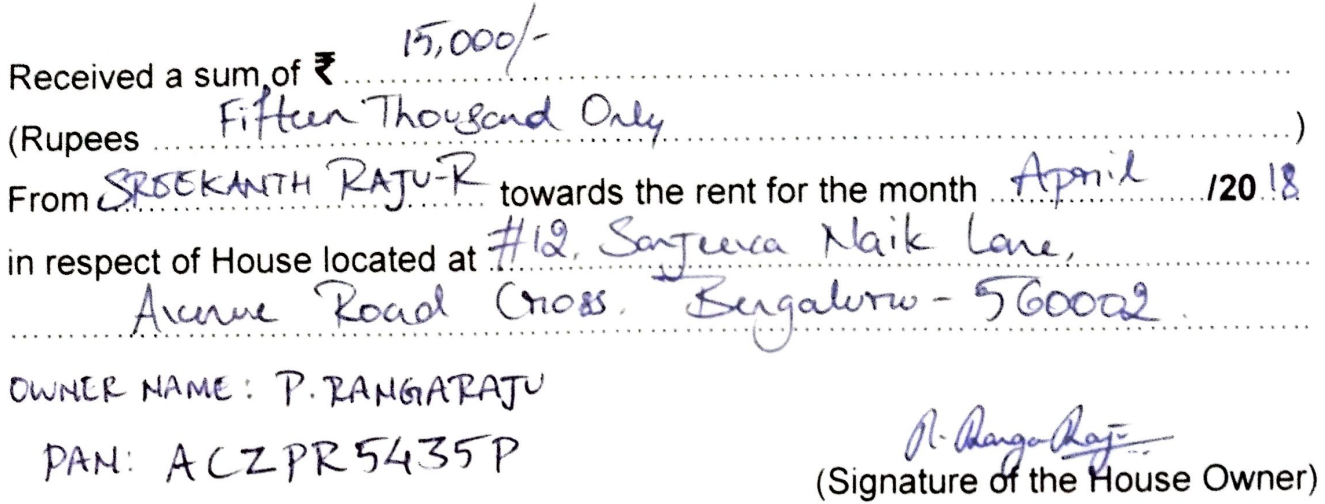 Received a sum of ₹ 15,000/-
(Rupees Fifteen Thousand Only)
From SREEKANTH RAJU-R towards the rent for the month April /2018
in respect of House located at #12, Sanjeeva Naik Lane,
Avenue Road Cross. Bengaluru - 560002.
OWNER NAME: P. RANGARAJU
PAN: ACZPR5435P
P. Ranga Raju
(Signature of the House Owner)